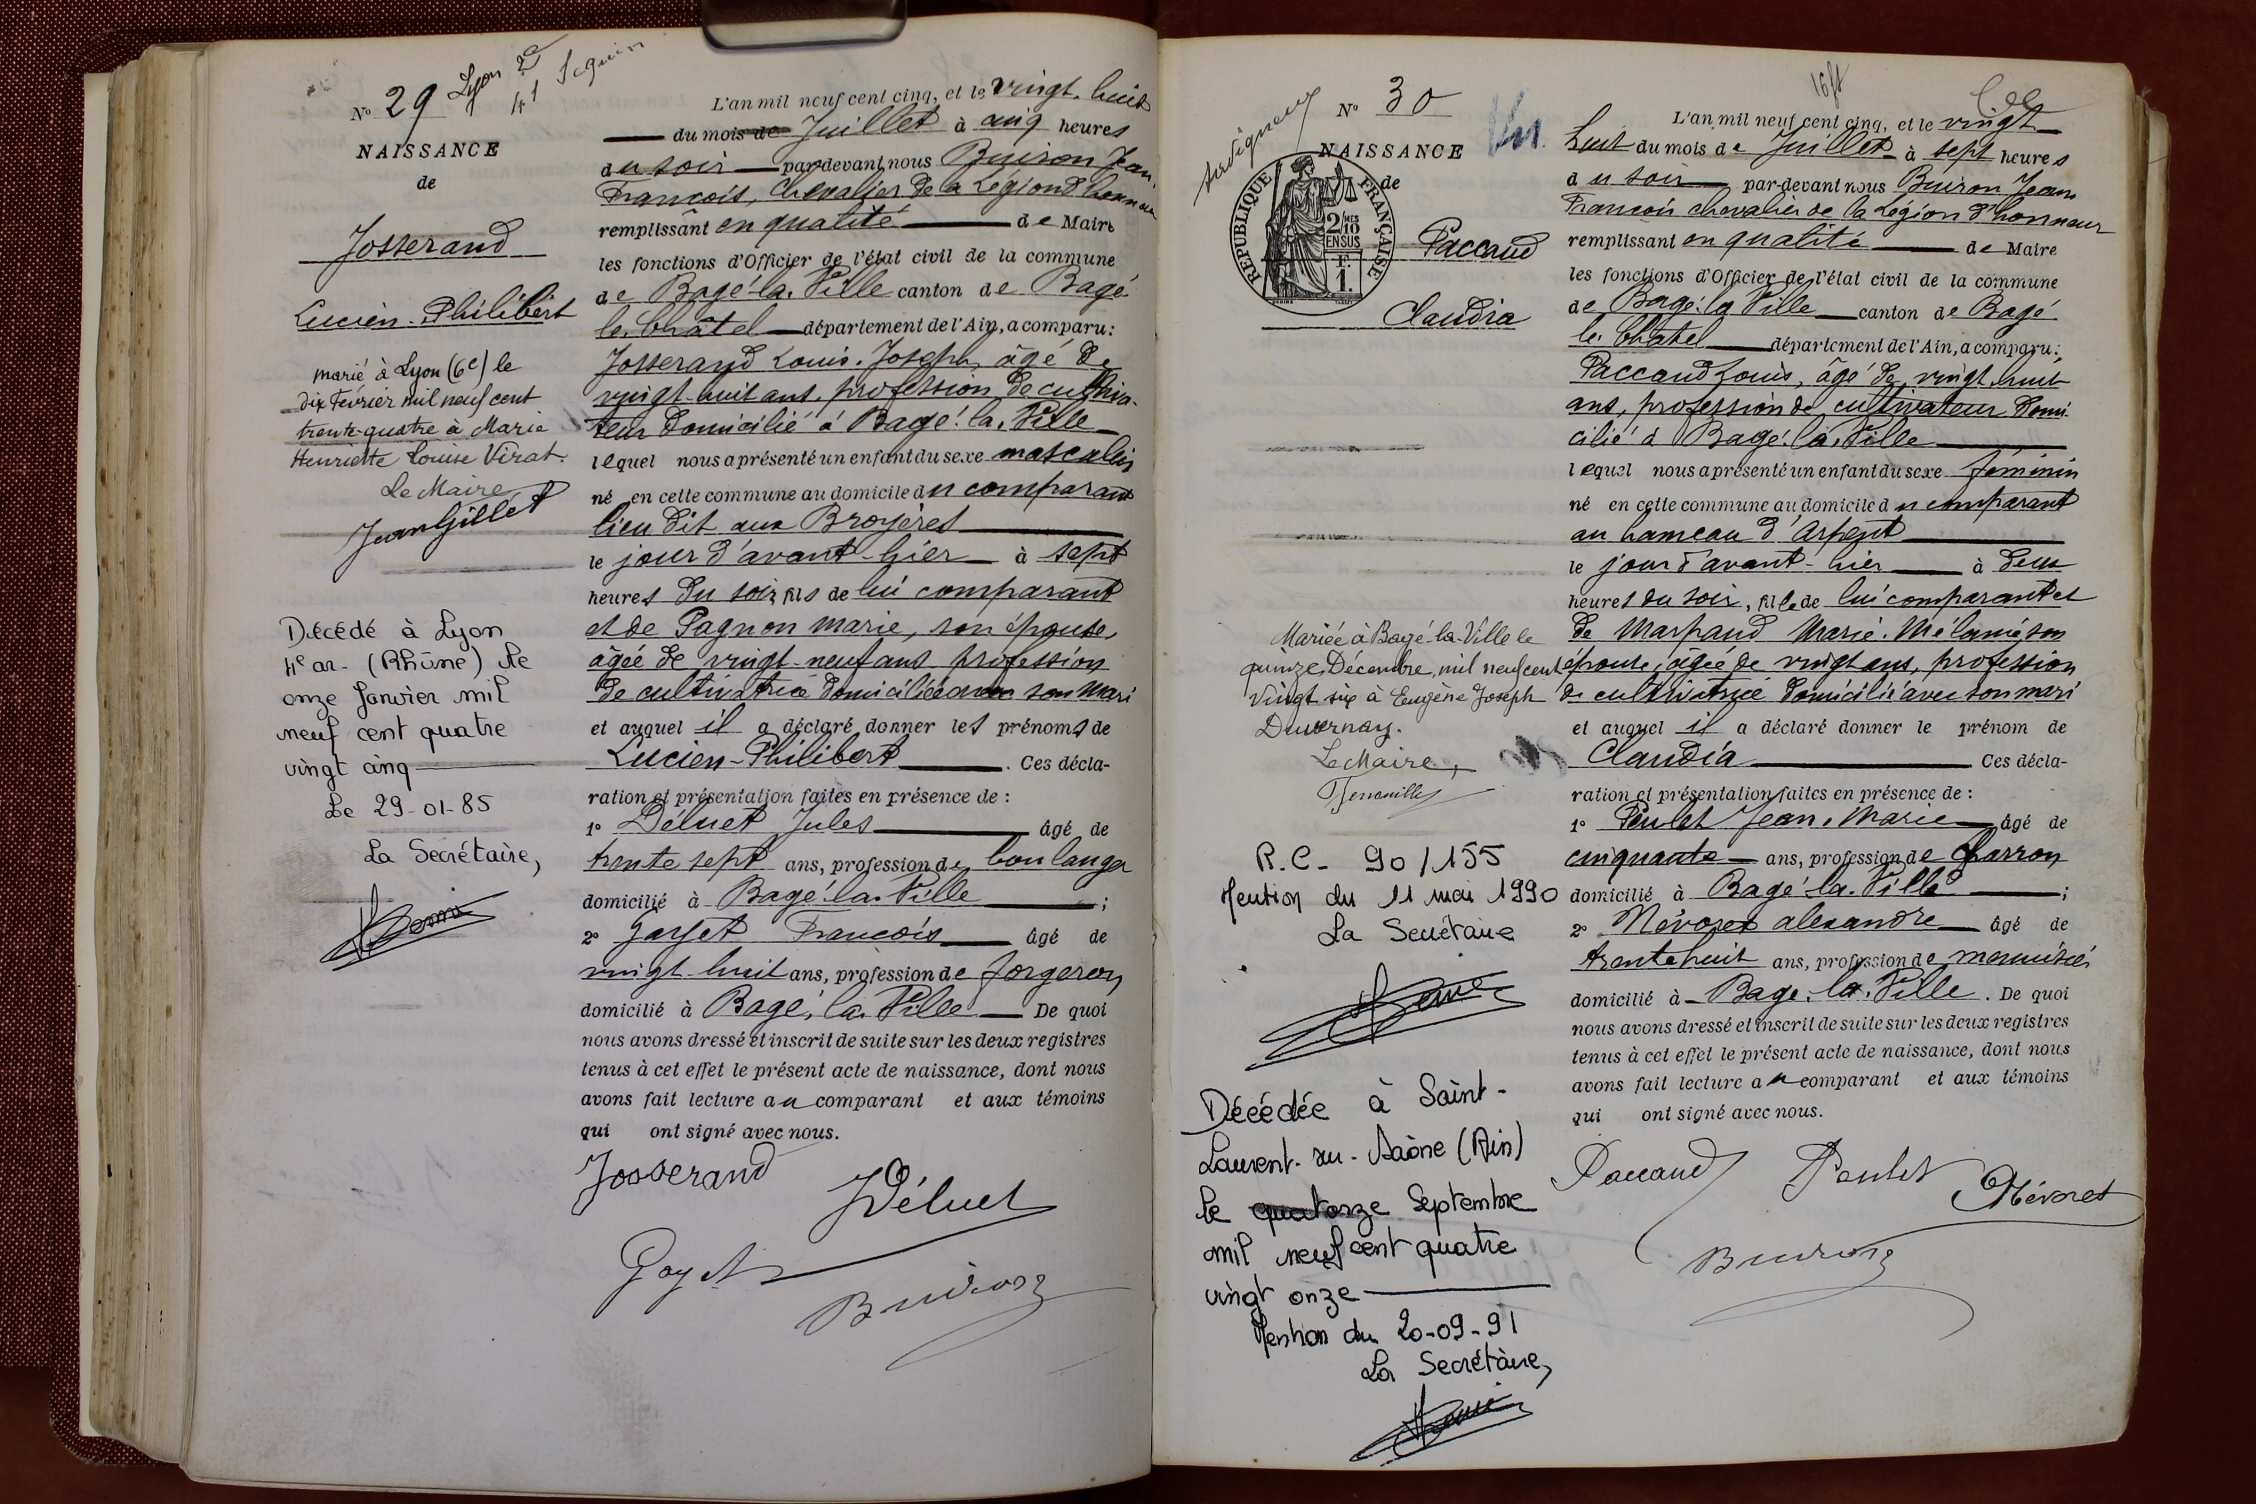 Lyon 2e
41 Seguin
No 29
NAISSANCE
de
Josserand
Lucien-Philibert
marié à Lyon (6e) le
dix Février mil neuf cent
trente-quatre à Marie
Henriette Louise Virat.
Le Maire
Jean Gillet
Décédé à Lyon
4e ar. (Rhône) le
onze Janvier mil
neuf cent quatre
vingt cinq
Le 29-01-85
La Secrétaire,
L'an mil neuf cent cinq, et le vingt-huit
du mois de Juillet à cinq heures
du soir par-devant nous Buiron Jean-
François, chevalier de la Légion d'honneur
remplissant en qualité de Maire
les fonctions d'Officier de l'état civil de la commune
de Bagé-la-Ville canton de Bagé-
le-Châtel département de l'Ain, a comparu:
Josserand Louis-Joseph, âgé de
vingt-huit ans, profession de cultiva-
teur domicilié à Bagé-la-Ville
lequel nous a présenté un enfant du sexe masculin
né en cette commune au domicile du comparant
lieu dit aux Broyères
le jour d'avant-hier à sept
heures du soir, fils de lui comparant
et de Pagnon Marie, son épouse,
âgée de vingt-neuf ans profession
de cultivatrice domiciliée avec son mari
et auquel il a déclaré donner les prénoms de
Lucien-Philibert. Ces décla-
ration et présentation faites en présence de :
1o Déluet Jules âgé de
trente sept ans, profession de boulanger
domicilié à Bagé-la-Ville ;
2o Goyet François âgé de
vingt-huit ans, profession de forgeron
domicilié à Bagé-la-Ville De quoi
nous avons dressé et inscrit de suite sur les deux registres
tenus à cet effet le présent acte de naissance, dont nous
avons fait lecture au comparant et aux témoins
qui ont signé avec nous.
Josserand
J Déluet
Goyet
Buiron
No 30
NAISSANCE
de
REPUBLIQUE FRANÇAISE
2/10 MES
EN SUS
F.
1.
Paccaud
Claudia
Mariée à Bagé-la-Ville le
quinze Décembre mil neuf cent
vingt six à Eugène Joseph
Duvernay.
Le Maire,
R.C- 90/155
Mention du 11 mai 1990
La Secrétaire
Décédée à Saint-
Laurent-sur-Saône (Ain)
le quatorze Septembre
mil neuf cent quatre
vingt onze
Mention du 20-09-91
La Secrétaire,
16 ft
L'an mil neuf cent cinq, et le vingt
huit du mois de Juillet à sept heures
du soir par-devant nous Buiron Jean
François chevalier de la Légion d'honneur
remplissant en qualité de Maire
les fonctions d'Officier de l'état civil de la commune
de Bagé-la-Ville canton de Bagé
le-Châtel département de l'Ain, a comparu:
Paccaud Louis, âgé de vingt-huit
ans, profession de cultivateur domi-
cilié à Bagé-la-Ville
lequel nous a présenté un enfant du sexe féminin
né en cette commune au domicile du comparant
au hameau d'Arpent
le jour d'avant-hier à deux
heures du soir, fille de lui comparant et
de Marpaud Marie-Mélanie son
épouse, âgée de vingt ans, profession
de cultivatrice domiciliée avec son mari
et auquel il a déclaré donner le prénom de
Claudia Ces décla-
ration et présentation faites en présence de :
1o Poulet Jean-Marie âgé de
cinquante ans, profession de charron
domicilié à Bagé-la-Ville ;
2o Névoret alexandre âgé de
trente huit ans, profession de menuisier
domicilié à Bagé-la-Ville. De quoi
nous avons dressé et inscrit de suite sur les deux registres
tenus à cet effet le présent acte de naissance, dont nous
avons fait lecture au comparant et aux témoins
qui ont signé avec nous.
Paccaud
Poulet
Névoret
Buiron